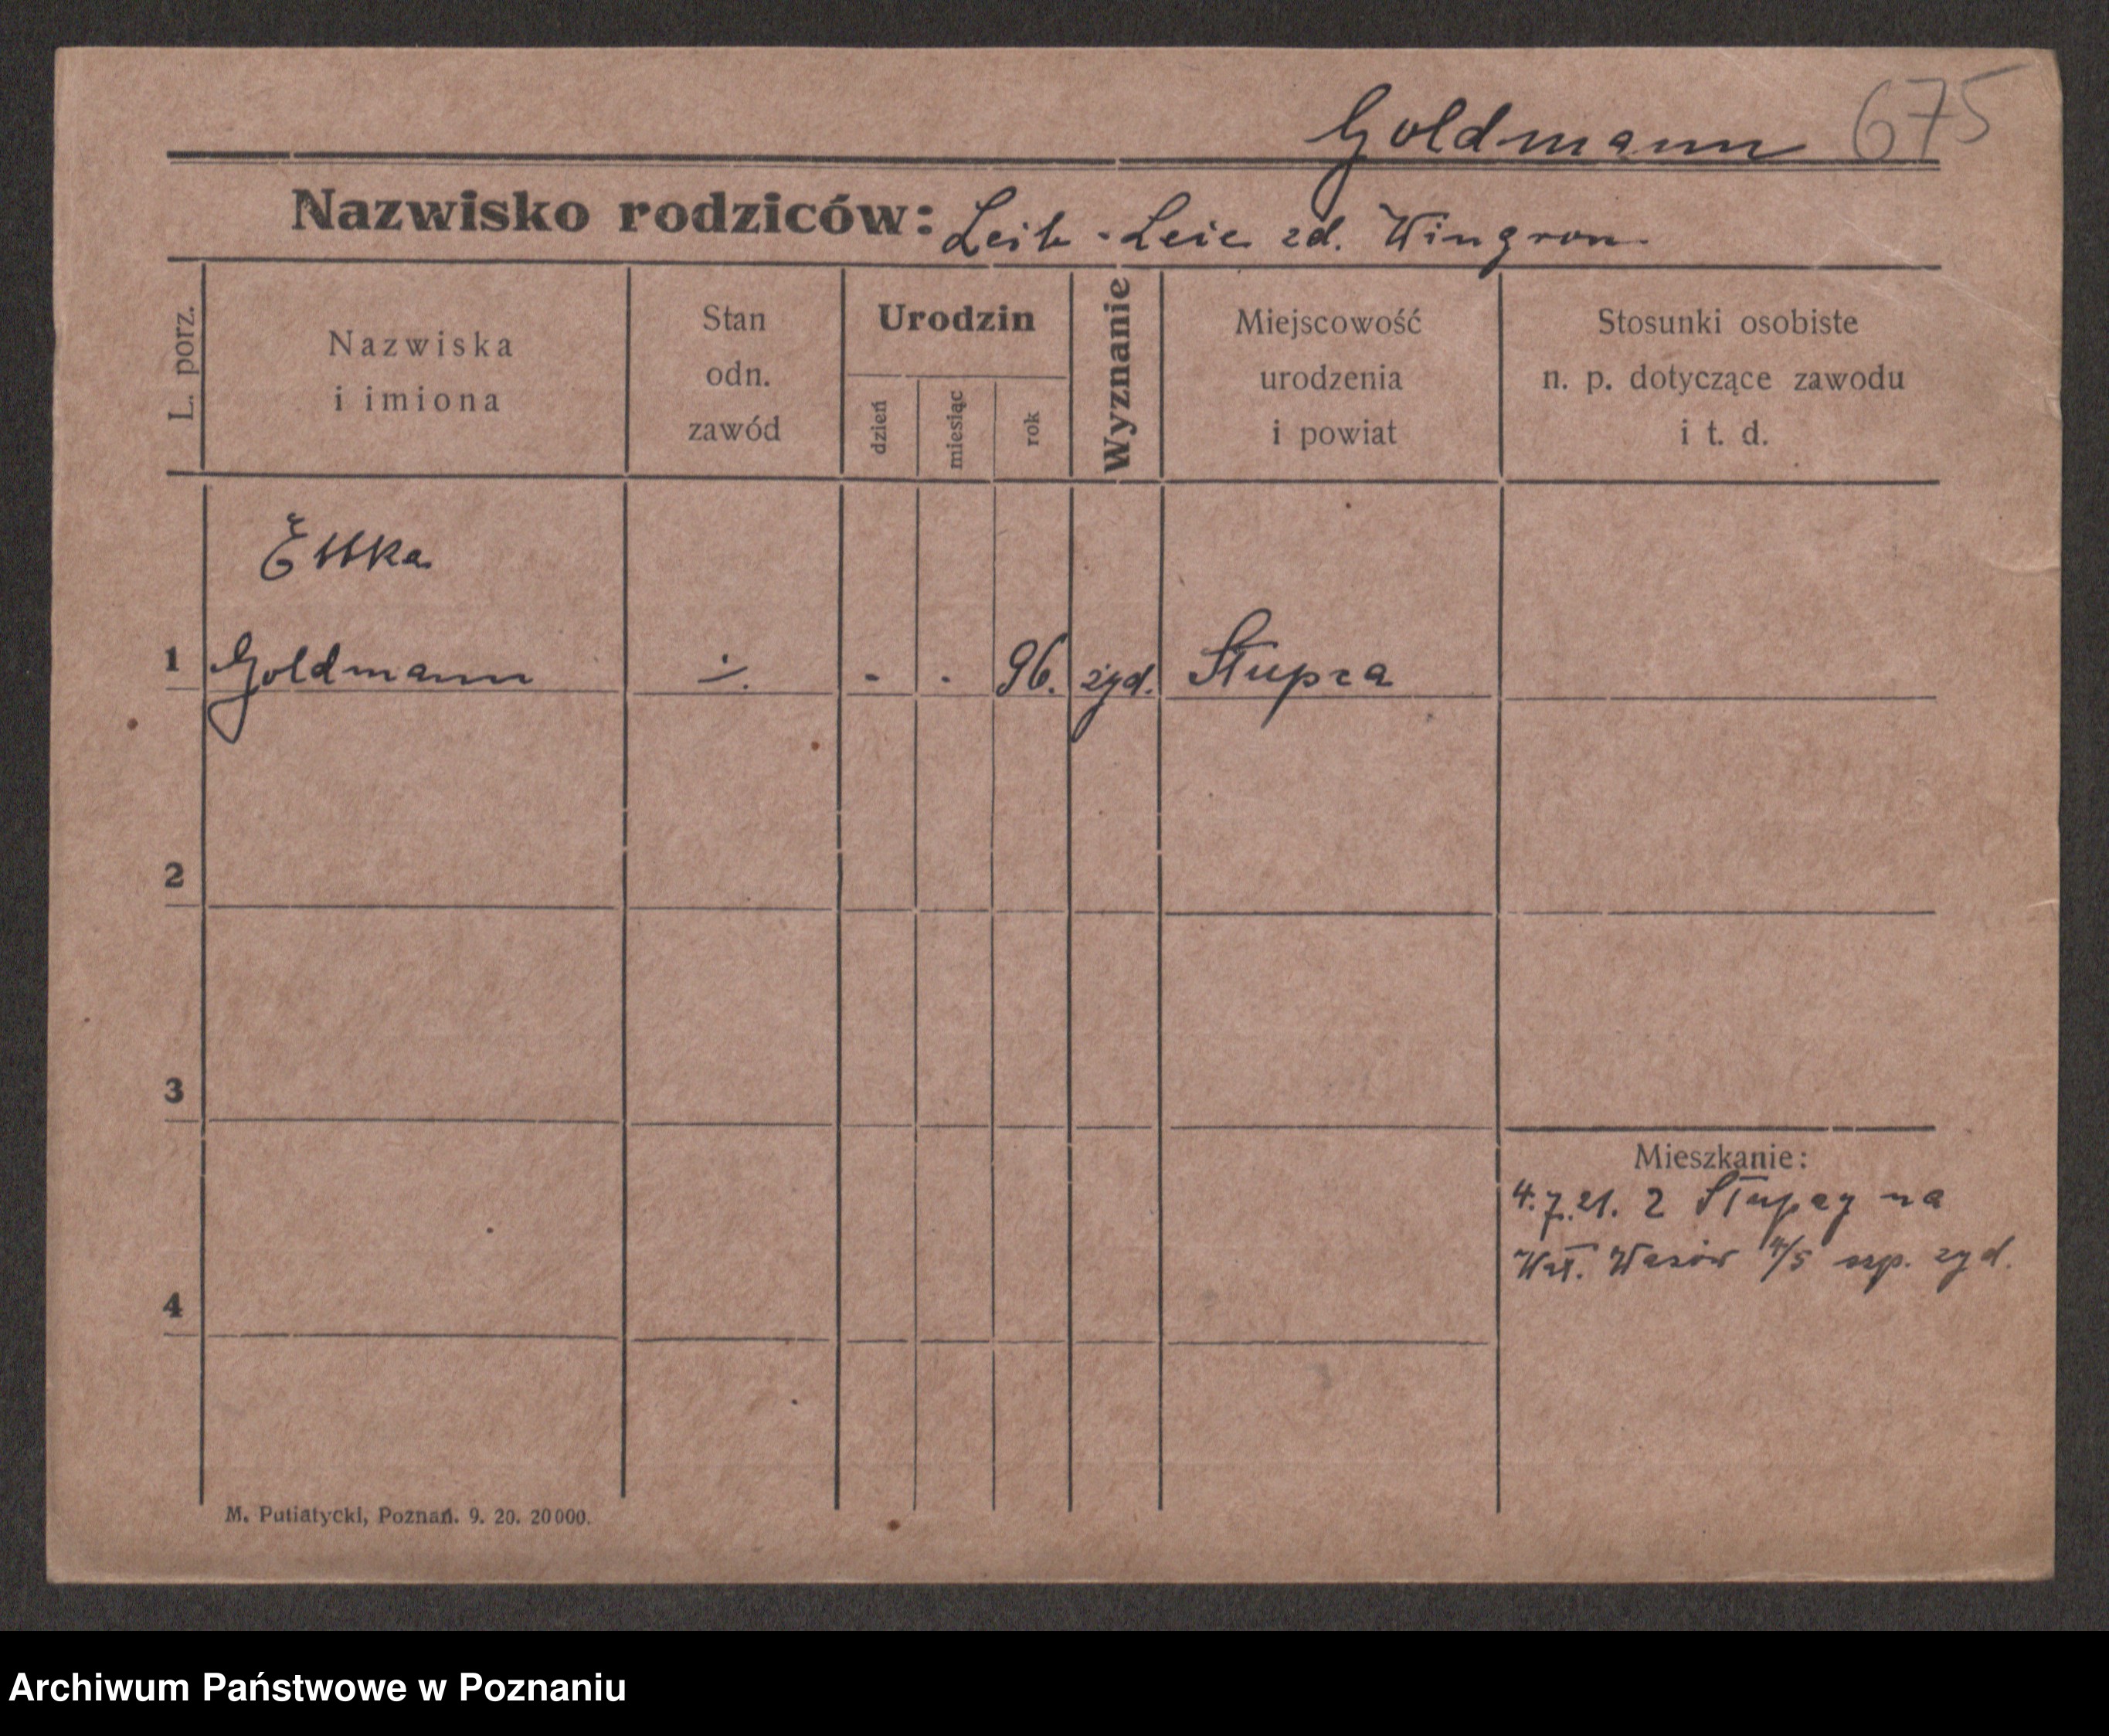 Goldmann 675
Nazwisko rodziców: Leib - Leie zd. Wingron
L. porz.
Nazwiska
i imiona
Stan
odn.
zawód
Urodzin
dzień
miesiąc
rok
Wyznanie
Miejscowość
urodzenia
i powiat
Stosunki osobiste
n. p. dotyczące zawodu
i t. d.
Ettka
1 Goldmann - - 96. żyd. Słupca
2
3
Mieszkanie:
4.7.21. z Słupcy na
Wzł. 4/5 szp. żyd.
4
M. Putiatycki, Poznań. 9. 20. 20000.
Archiwum Państwowe w Poznaniu